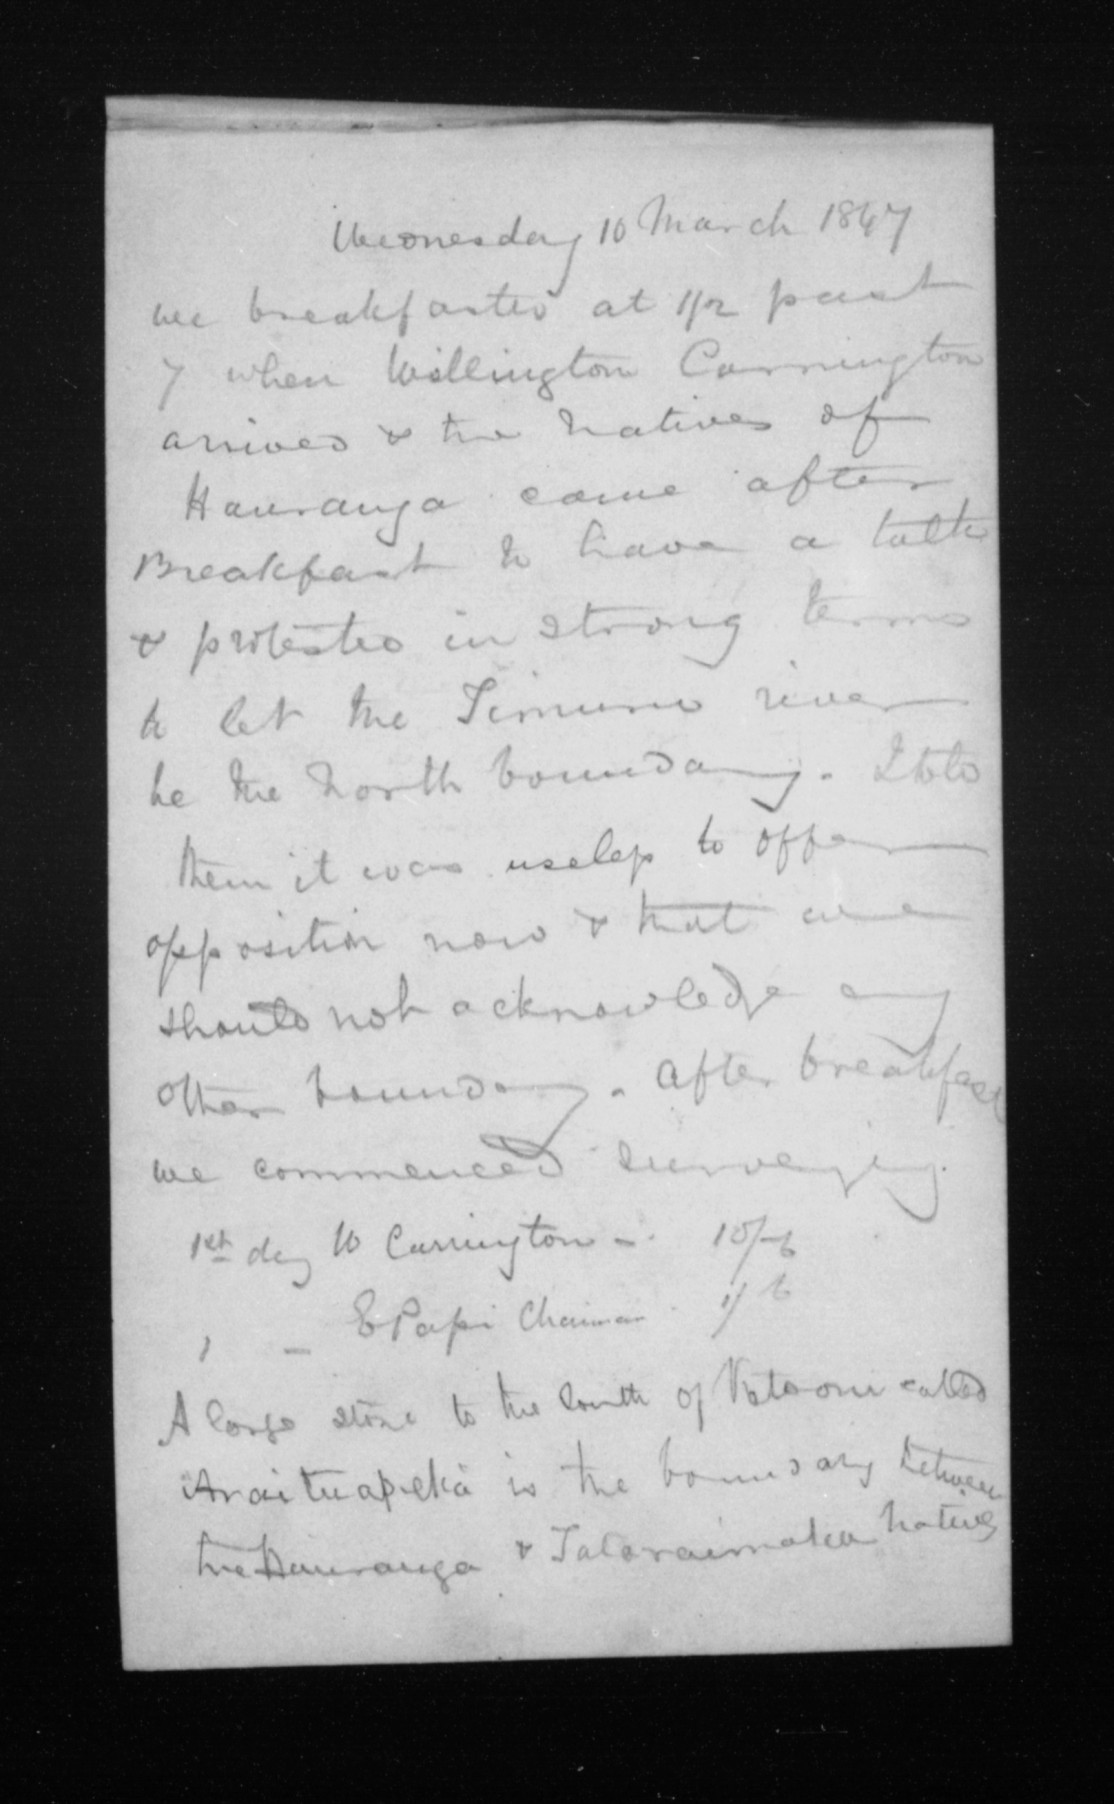 Wednesday 10 March 1847
we breakfasted at 1/2 past
7 when Wellington Carrington
arrived & the Natives of
Hauranga came after
Breakfast to have a talk
& protested in strong terms
to let the Timuru river
be the North boundary. I told
them it was useless to offer
opposition now & that we
should not acknowledge any
other boundary. after breakfast
we commenced surveying.
1st day W Carrington -. 10/-
" - E Papi Chainman 1/6
A large stone to the South of called
Araituapeka is the boundary between
the Hauranga & Tataraimaka Natives